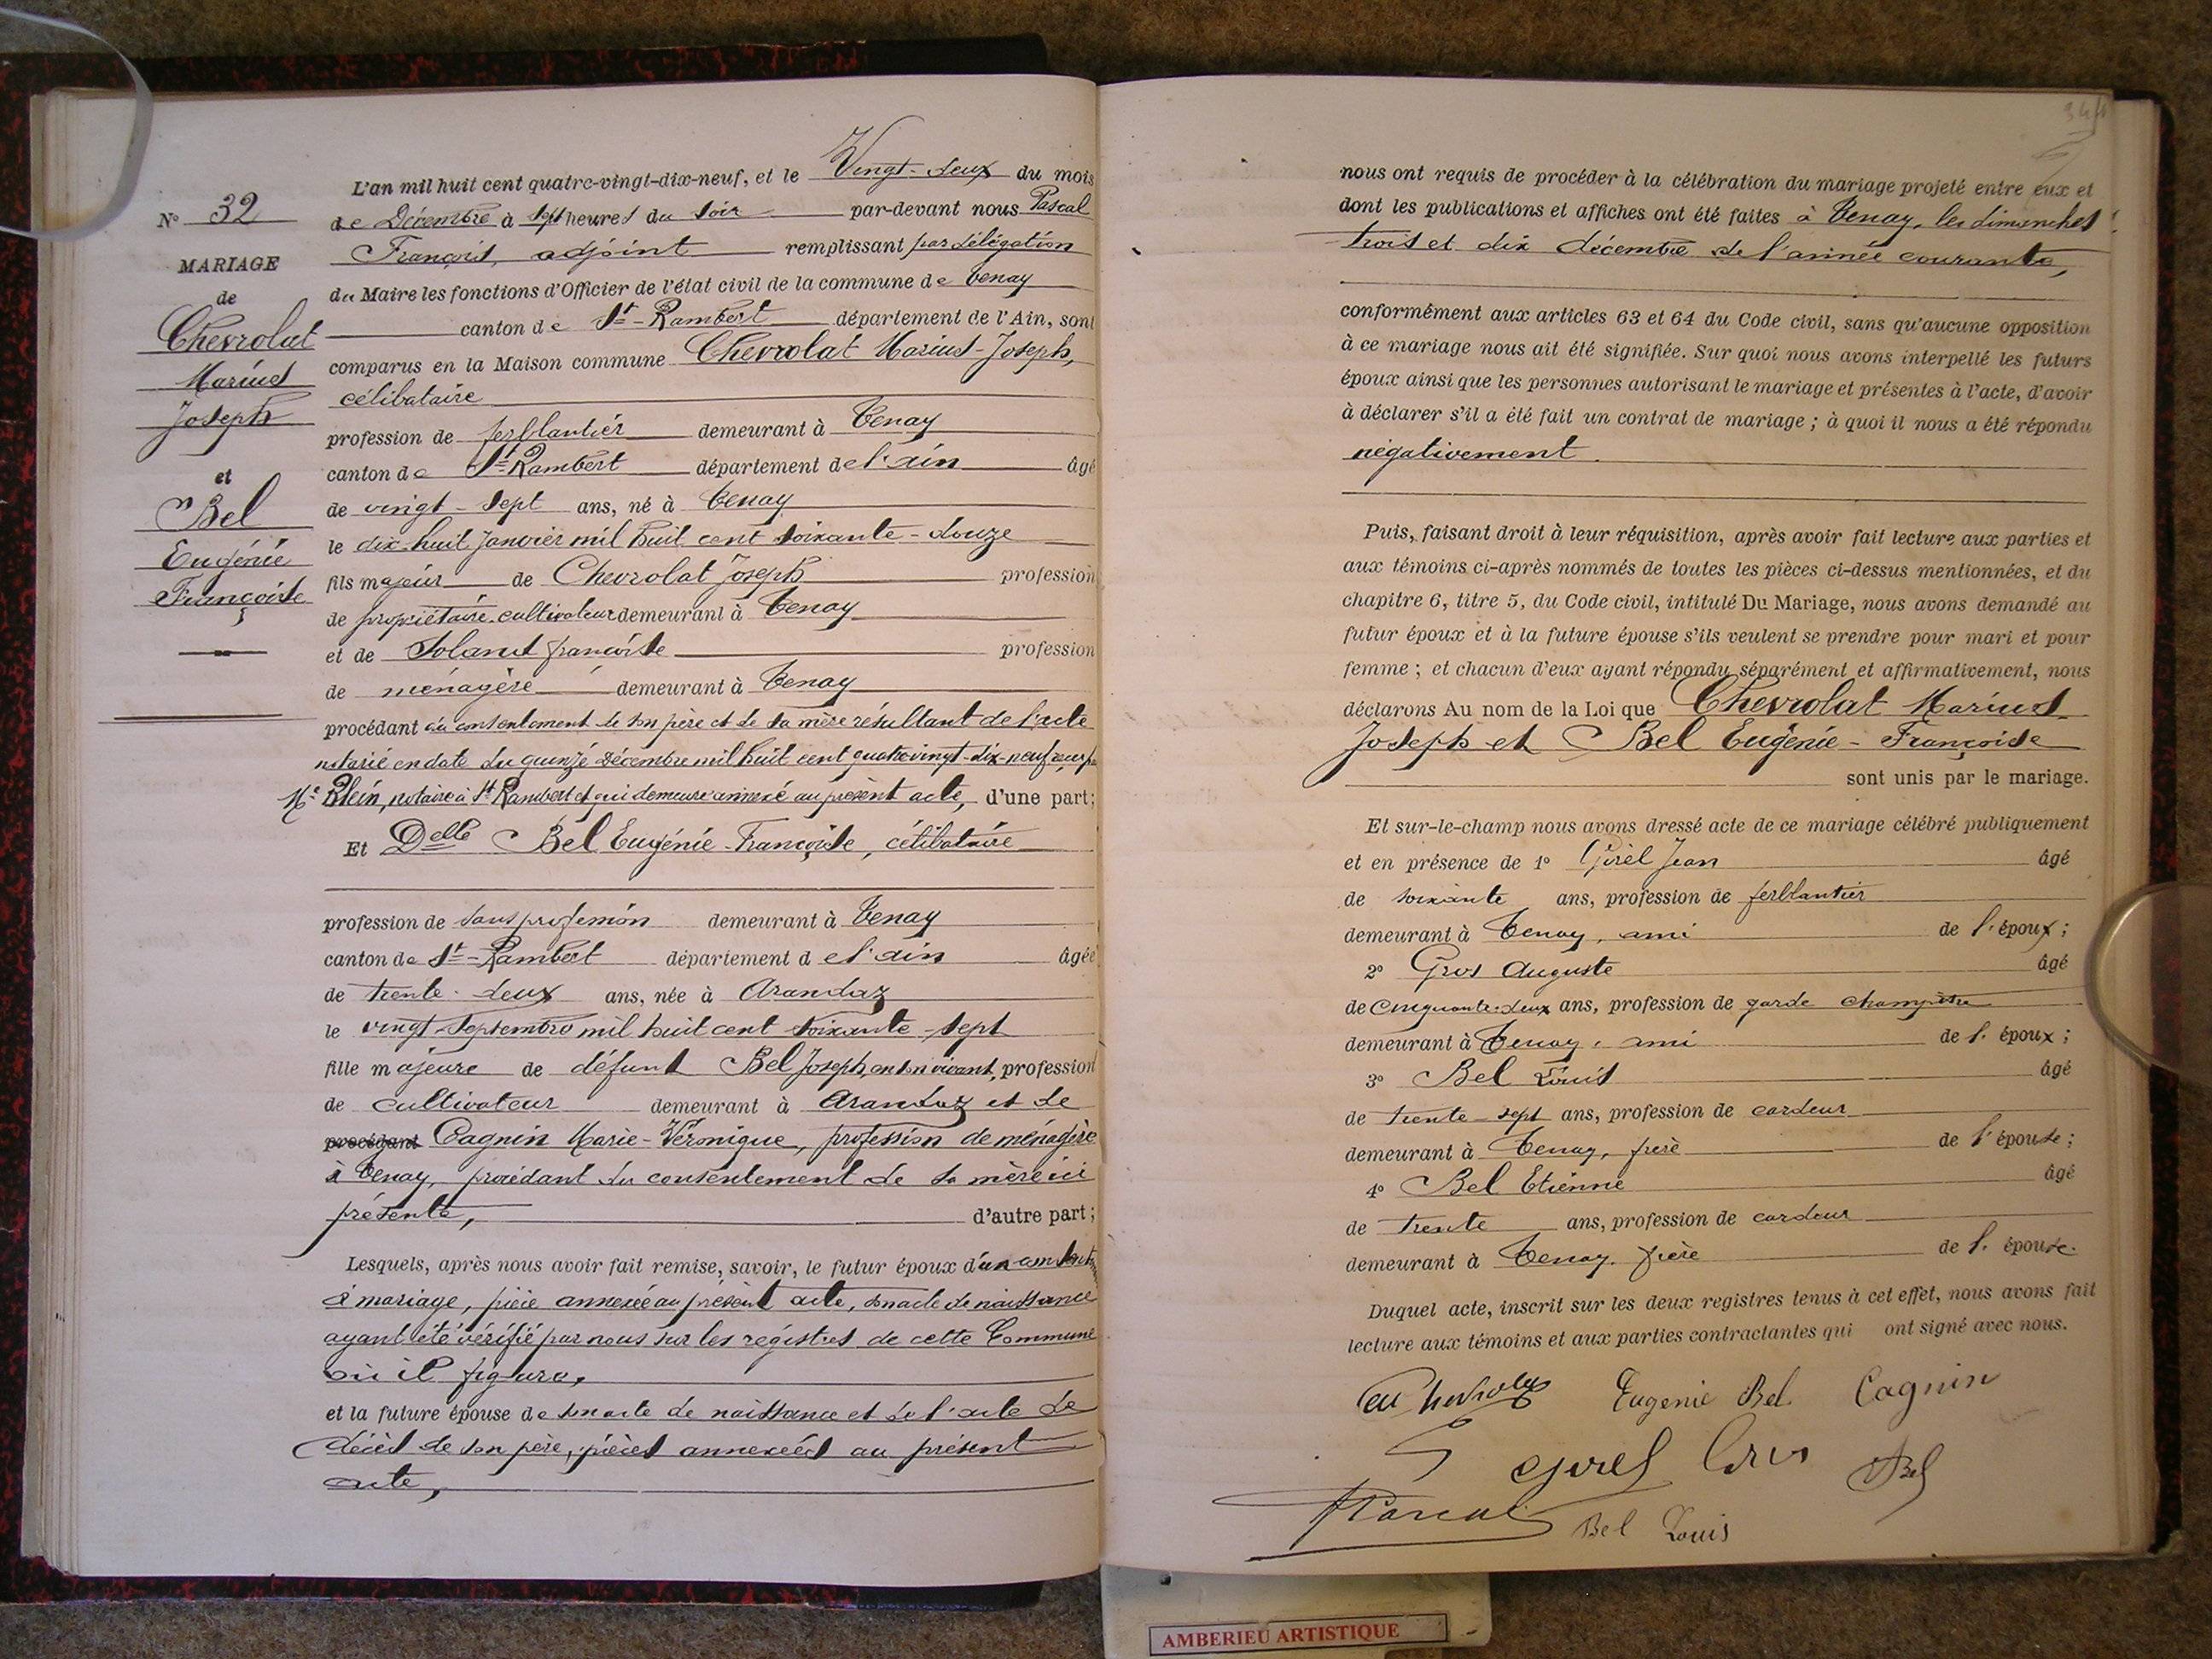 N° 32
MARIAGE
de
Chevrolat
Marius
Joseph
et
Bel
Eugénie
Françoise
L'an mil huit cent quatre-vingt-dix-neuf, et le Vingt-deux du mois
de Décembre à sept heures du soir par-devant nous Pascal
François, adjoint remplissant par délégation
du Maire les fonctions d'Officier de l'état civil de la commune de Tenay
canton de St-Rambert département de l'Ain, sont
comparus en la Maison commune Chevrolat Marius-Joseph,
célibataire
profession de ferblantier demeurant à Tenay
canton de St Rambert département de l'ain âgé
de vingt-sept ans, né à Tenay
le dix-huit Janvier mil huit cent soixante-douze
fils majeur de Chevrolat Joseph profession
de propriétaire cultivateur demeurant à Tenay
et de françoise profession
de ménagère demeurant à Tenay
procédant du consentement de son père et de sa mère résultant de l'acte
notarié en date du quinze Décembre mil huit cent quatre vingt-dix-neuf reçu par
Me Blein, notaire à St Rambert et qui demeure annexé au présent acte, d'une part;
Et Delle Bel Eugénie-Françoise, célibataire
profession de sans profession demeurant à Tenay
canton de St-Rambert département d el'ain âgée
de trente-deux ans, née à Arandaz
le vingt-Septembre mil huit cent soixante-sept
fille majeure de défunt Bel Joseph, en son vivant, profession
de cultivateur demeurant à Arandaz et de
procédant Cagnin Marie-Véronique, profession de ménagère
à Tenay, procédant du consentement de sa mère ici
présente, d'autre part;
Lesquels, après nous avoir fait remise, savoir, le futur époux d'un
à mariage, pièce annexée au présent acte, son acte de naissance
ayant été vérifié par nous sur les registres de cette Commune
où il figure,
et la future épouse de son acte de naissance et de l'acte de
décès de son père, pièces annexées au présent
acte,
nous ont requis de procéder à la célébration du mariage projeté entre eux et
dont les publications et affiches ont été faites à Tenay, les dimanches
trois et dix décembre de l'année courante,
conformément aux articles 63 et 64 du Code civil, sans qu'aucune opposition
à ce mariage nous ait été signifiée. Sur quoi nous avons interpellé les futurs
époux ainsi que les personnes autorisant le mariage et présentes à l'acte, d'avoir
à déclarer s'il a été fait un contrat de mariage ; à quoi il nous a été répondu
négativement.
Puis, faisant droit à leur réquisition, après avoir fait lecture aux parties et
aux témoins ci-après nommés de toutes les pièces ci-dessus mentionnées, et du
chapitre 6, titre 5, du Code civil, intitulé Du Mariage, nous avons demandé au
futur époux et à la future épouse s'ils veulent se prendre pour mari et pour
femme ; et chacun d'eux ayant répondu séparément et affirmativement, nous
déclarons Au nom de la Loi que Chevrolat Marius
Joseph et Bel Eugénie-Françoise
sont unis par le mariage.
Et sur-le-champ nous avons dressé acte de ce mariage célébré publiquement
et en présence de 1° Girel Jean âgé
de soixante ans, profession de ferblantier
demeurant à Tenay, ami de l'époux;
2° Gros Auguste âgé
de cinquante-deux ans, profession de garde champêtre
demeurant à Tenay, ami de l'époux;
3° Bel Louis âgé
de trente-sept ans, profession de cardeur
demeurant à Tenay, frère de l'épouse;
4° Bel Etienne âgé
de trente ans, profession de cardeur
demeurant à Tenay, frère de l'épouse.
Duquel acte, inscrit sur les deux registres tenus à cet effet, nous avons fait
lecture aux témoins et aux parties contractantes qui ont signé avec nous.
Eugenie Bel Cagnin
Girel Gros Bel
Pascal Bel Louis
AMBERIEU ARTISTIQUE